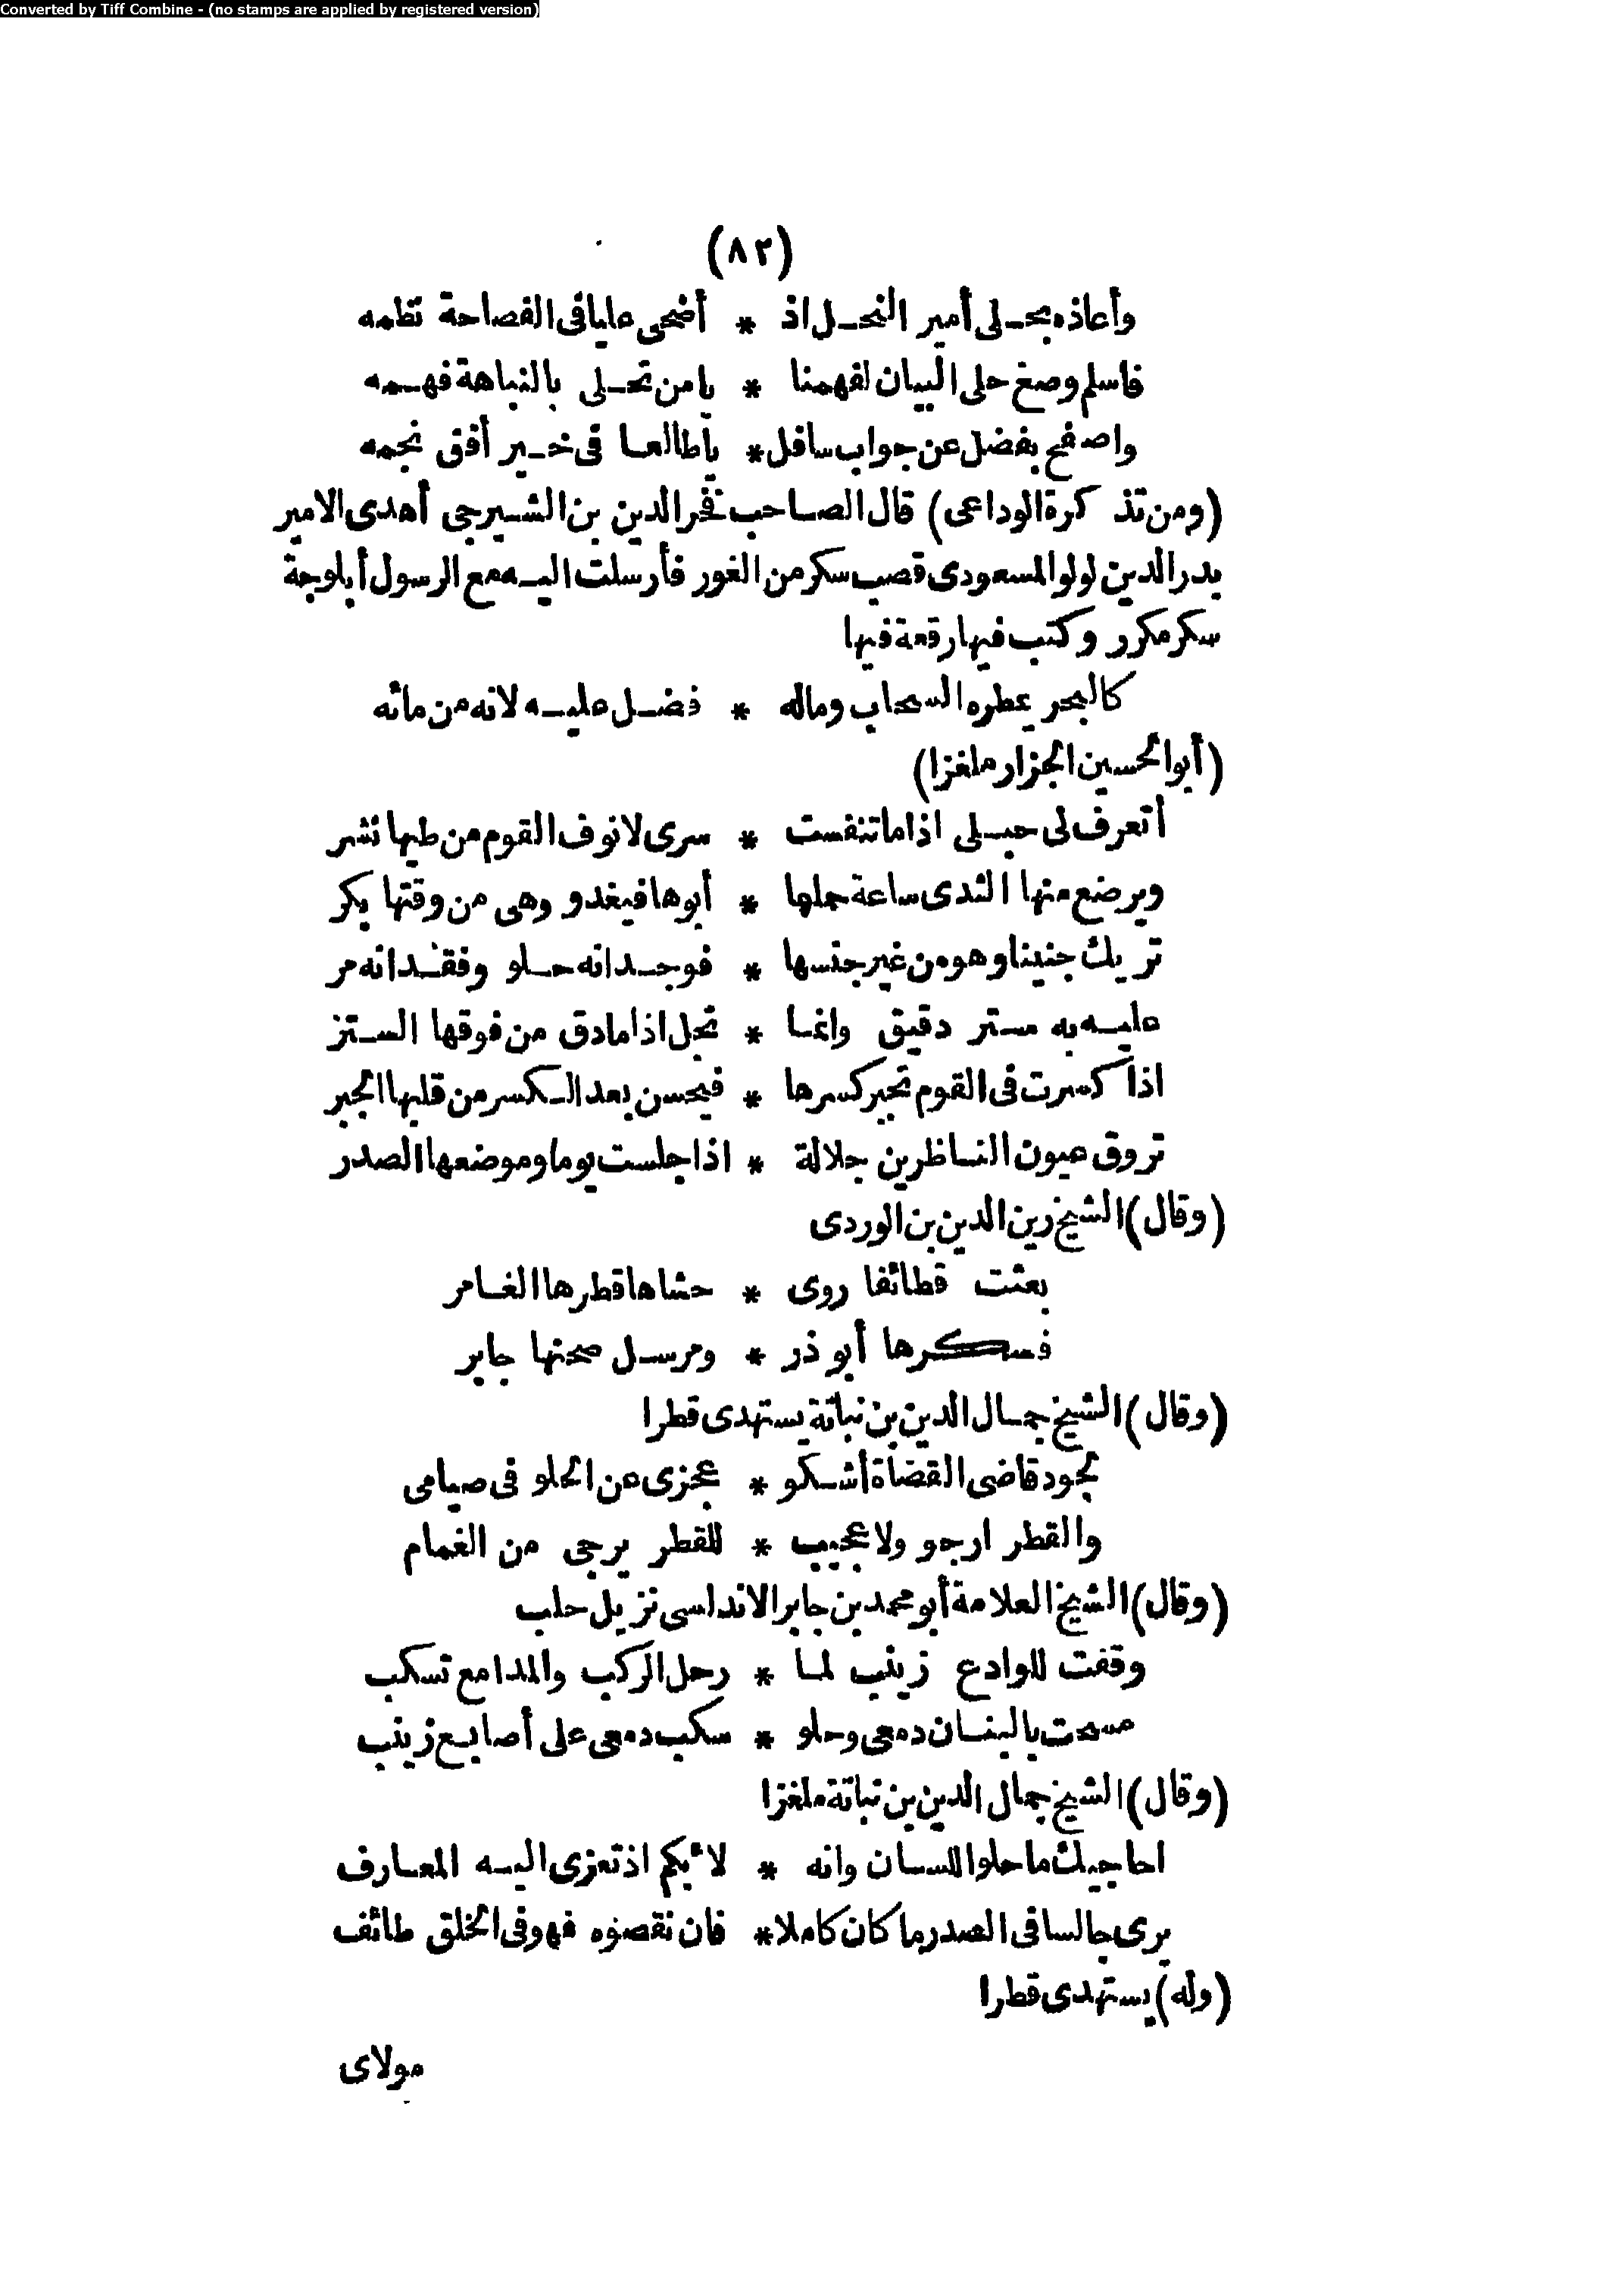 Converted by Tiff Combine - (no stamps are applied by registered version)
(٨٢)
وأعاذه بحلى أمير النحل اذ * أضحى عليا فى الفصاحة نظمه
فاسلم وصغ حلى البيان لفهمنا * يا من تحلى بالنباهة فهمه
واصفح بفضل عن جواب سافل * يا طالعا فى خير أفق نجمه
(ومن تذكرة الوداعى) قال الصاحب فخر الدين بن الشيرجى أهدى الامير
بدر الدين لولو المسعودى قصب سكر من الغور فأرسلت اليه مع الرسول أبلوجة
سكر مكرر وكتب فيها رقعة فيها
كالبحر يمطره السحاب وماله * فضل عليه لانه من مائه
(أبو الحسين الجزار ملغزا)
أتعرف لى حبلى اذا ما تنفست * سرى لانوف القوم من طيها نشر
ويرضع منها الثدى ساعة حملها * أبوها فيغدو وهى من وقتها بكر
تريك جنينا وهو من غير جنسها * فوجدانه حلو وفقدانه مر
عليه به ستر دقيق وانما * تجل اذا ما دق من فوقها الستر
اذا كسرت فى القوم تجبر كسرها * فيحسن بعد الكسر من قلبها الجبر
تروق عيون الناظرين جلالة * اذا جلست يوما وموضعها الصدر
(وقال) الشيخ زين الدين بن الوردى
بعثت قطائفا روى * حشاها قطرها الغامر
فسكرها أبو ذر * ومرسل صحنها جابر
(وقال) الشيخ جمال الدين بن نباتة يستهدى قطرا
لجود قاضى القضاة أشكو * عجزى عن الحلو فى صيامى
والقطر ارجو ولا عجيب * للقطر يرجى من الغمام
(وقال) الشيخ العلامة أبو محمد بن جابر الاندلسى نزيل حلب
وقفت للوادع زينب لما * رحل الركب والمدامع تسكب
مسحت بالبنان دمعى وحلو * سكب دمعى على أصابع زينب
(وقال) الشيخ جمال الدين بن نباتة ملغزا
احاجيك ما حلوا للسان وانه * لا بكم اذ تعزى اليه المعارف
يرى جالسا فى الصدر ما كان كاملا * فان نقصوه فهو فى الخلق طائف
(وله) يستهدى قطرا
مولاى